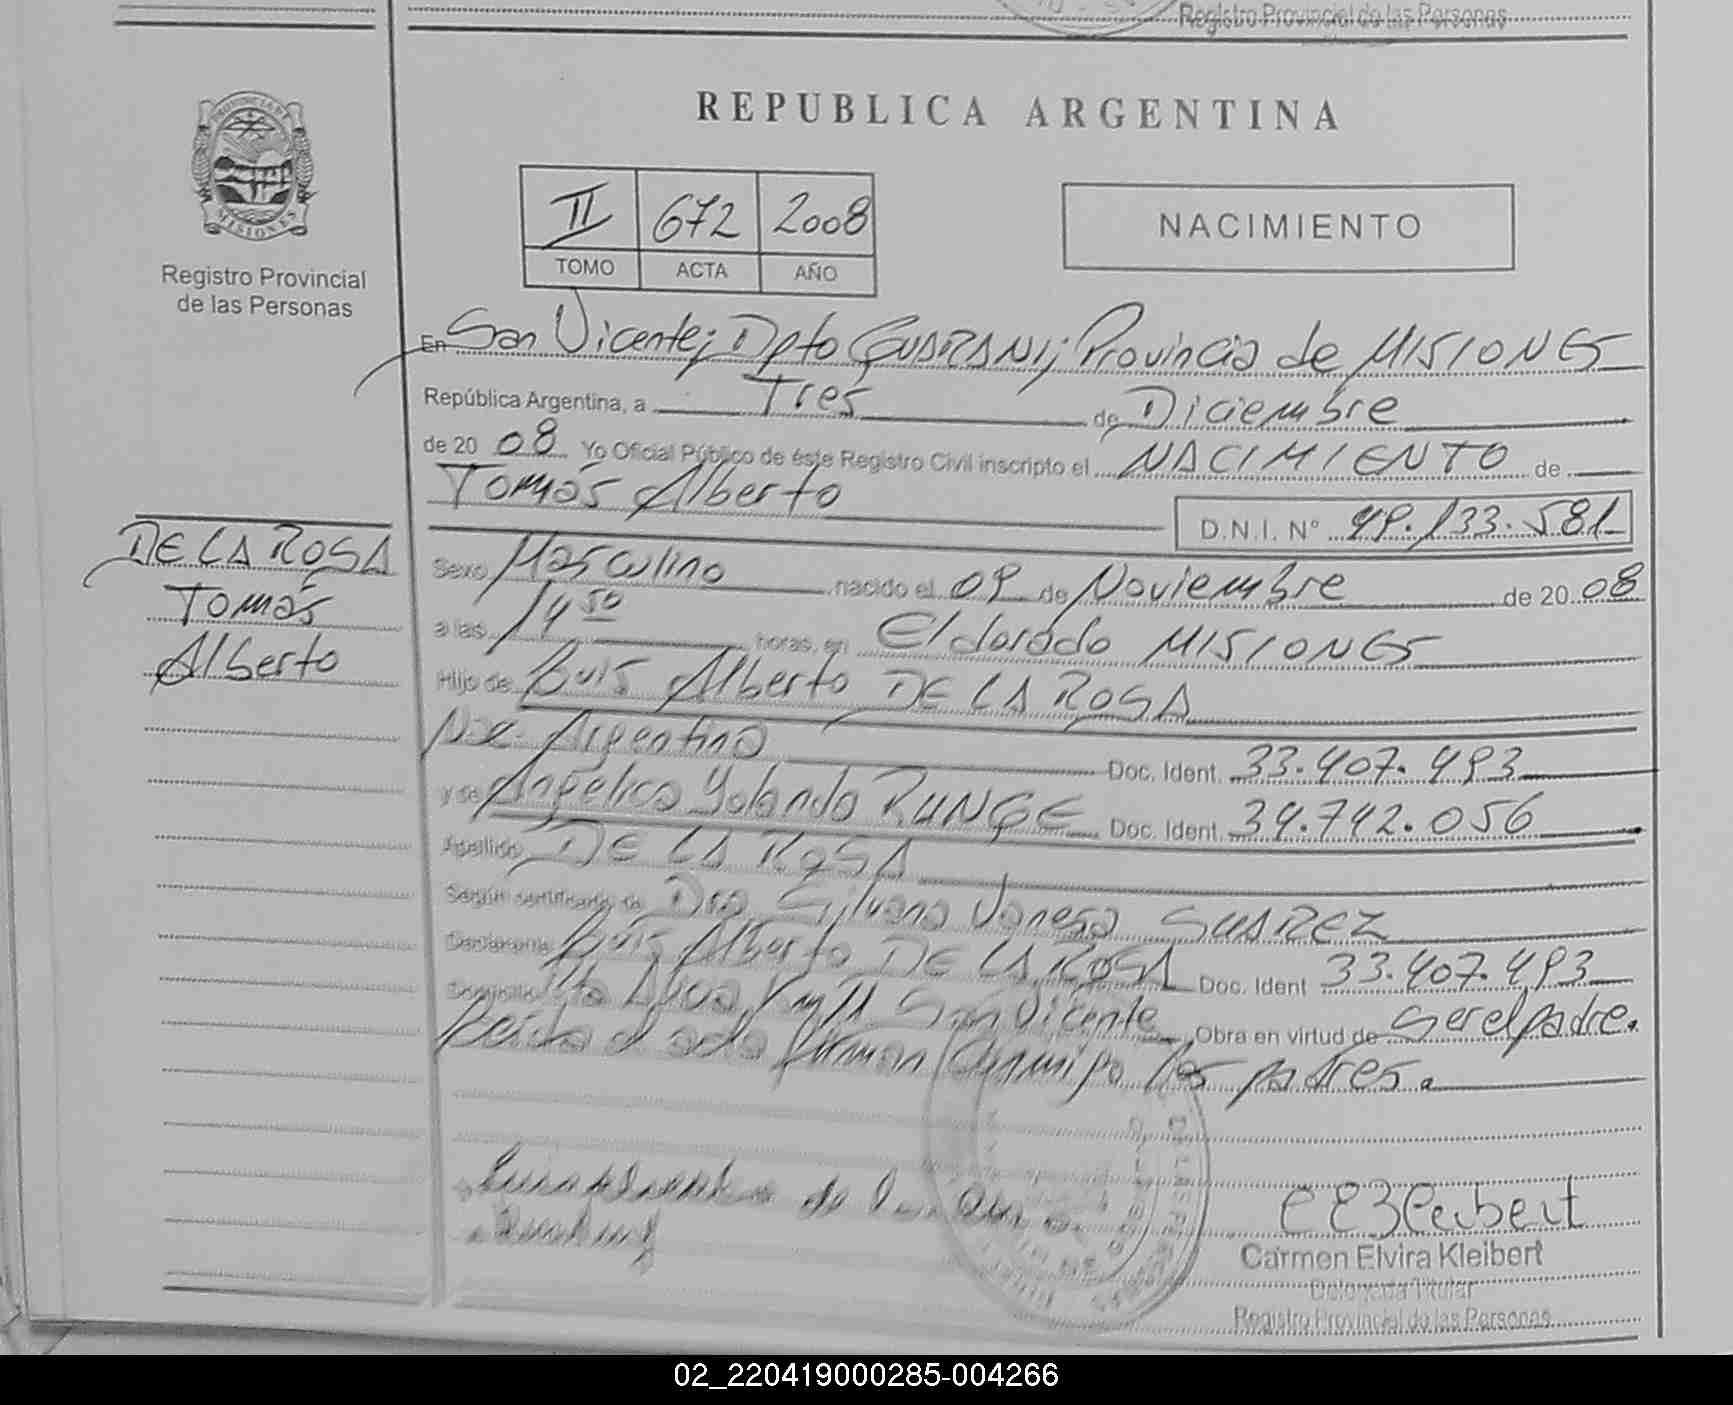 Registro Provincial de las Personas
REPUBLICA ARGENTINA
MISIONES
Registro Provincial
de las Personas
II 672 2008
TOMO ACTA AÑO
NACIMIENTO
En San Vicente; Dpto GUARANI; Provincia de MISIONES
República Argentina, a Tres de Diciembre
de 20 08 Yo Oficial Público de éste Registro Civil inscripto el NACIMIENTO de
Tomás Alberto
D.N.I. Nº 49.133.581
DE LA ROSA
Tomás
Alberto
Sexo Masculino nacido el 09 de Noviembre de 20 08
a las 14 50 horas, en Eldorado MISIONES
Hijo de Luis Alberto DE LA ROSA
Nac. Argentina Doc. Ident. 33.407.493
y de Angelica Yolanda RUNGE Doc. Ident. 34.742.056
Apellido DE LA ROSA
Según certificado de Dra Silvana Vanesa SUAREZ
Declarante Luis Alberto DE LA ROSA Doc. Ident 33.407.493
Domicilio San Vicente Obra en virtud de ser el padre.
Leída el acta firman conmigo los padres.
Carmen Elvira Kleibert
Delegada Titular
Registro Provincial de las Personas
02_220419000285-004266